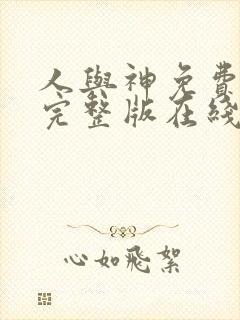 人與神免費
完整版在綫
心如飛絮